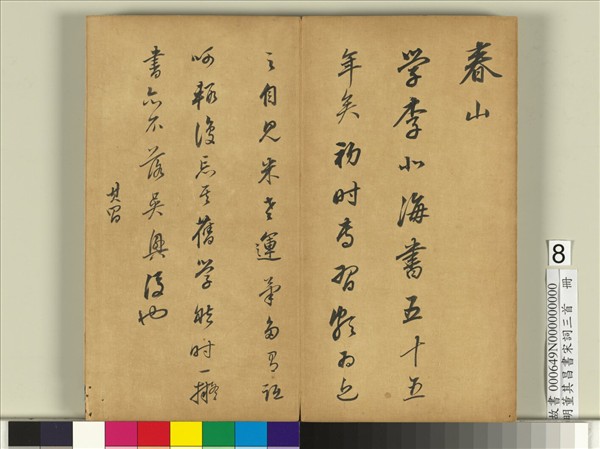 春山
学李北海書五十五
年矣初时專習為
之自見米老運筆多有詆
呵輒復忘其舊学然时一擬
書亦不落吳興後也
其昌
8
故書000649N000000000
明董其昌書宋詞三首 冊